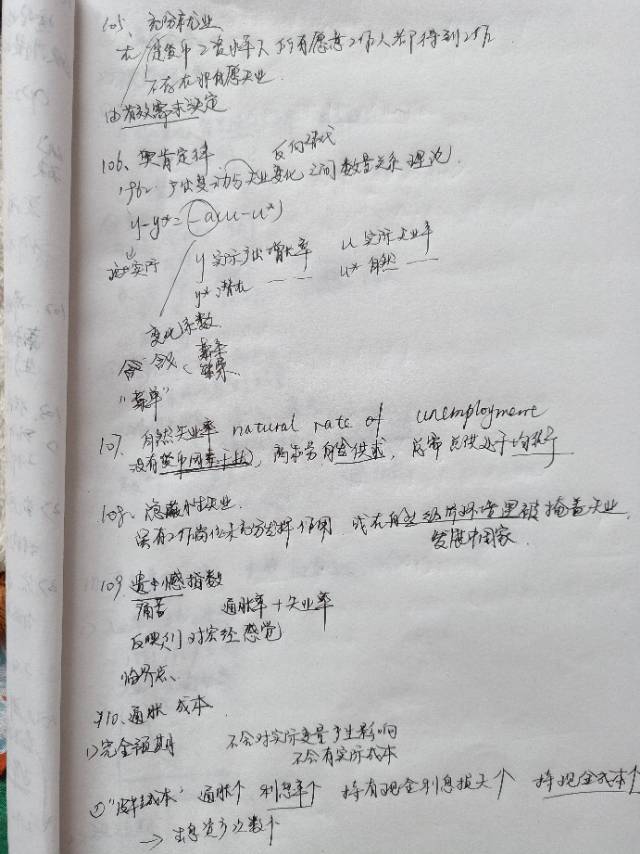 105、充分就业
在 货币工资水平下 所有愿意工作人都得到工作
不存在非自愿失业
由有效需求决定
106、奥肯定律 反向替代
1962 产出变动与失业变化之间数量关系理论.
y-y*=-a(u-u*)
实际
y 实际产出增长率 u 实际失业率
y* 潜在 — — u* 自然 —
变化系数
含义 政策
效果
"菜单"
107、自然失业率 natural rate of unemployment
没有货币因素干扰, 劳市 供求, 总需总供处于均衡
108、隐蔽性失业
虽有工作岗位未充分发挥作用. 或在自然经济环境里被掩盖失业.
发展中国家.
109、遗憾指数
痛苦 通胀率+失业率
反映人们对宏经感觉
临界点、
110、通胀成本
1)完全预期 不会对实际变量产生影响
不会有实际成本
①"皮鞋成本" 通胀↑ 利息率↑ 持有现金利息损失↑ 持现金成本↑
→ 次数↑